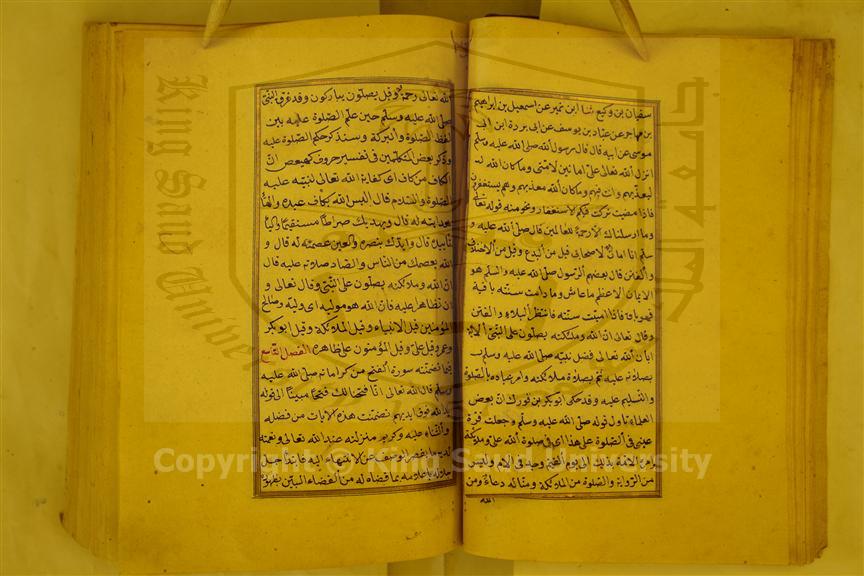 سفيان بن وكيع ثنا ابن نمير عن اسمعيل بن ابراهيم
بن مهاجر عن عباد بن يوسف عن ابى بردة ابن ابى
موسى عن ابيه قال قال رسول الله صلى الله عليه وسلم
انزل الله تعالى على امانين لامتى وما كان الله
ليعذبهم وانت فيهم وما كان الله معذبهم وهم يستغفرون
فاذا مضيت تركت فيكم الاستغفار ونحو منه قوله تعالى
وما ارسلناك الا رحمة للعالمين قال صلى الله عليه و
سلم انا امان لاصحابى قيل من البدع وقيل من الاختلاف
والفتن قال بعضهم الرسول صلى الله عليه وسلم هو
الامان الاعظم ما عاش وما دامت سنته باقية
فهو باق فاذا اميتت سنته فانتظر البلاء والفتن
وقال تعالى ان الله وملئكته يصلون على النبى الاية
ابان الله تعالى فضل نبيه صلى الله عليه وسلم
بصلاته عليه ثم بصلاة ملائكته وامر عباده بالصلوة
والتسليم عليه وقد حكى ابو بكر بن فورك ان بعض
العلماء تاول قوله صلى الله عليه وسلم وجعلت قرة
عينى فى الصلوة على هذا اى فى صلوة الله على وملائكته
وامر الامة بذلك الى يوم القيمة
من الرواية والصلوة من الملائكة ومنا له دعاء ومن
الله
الله تعالى رحمة وقيل يصلون يباركون وقد فرق النبى
صلى الله عليه وسلم حين علم الصلوة عليه بين
لفظ الصلوة والبركة وسنذكر حكم الصلوة عليه
وذكر بعض المتكلمين فى تفسير حروف كهيعص ان
الكاف من كاف اى كفاية الله تعالى لنبيه عليه
الصلوة والسلام قال اليس الله بكاف عبده والهاء
هدايته له قال ويهديك صراطا مستقيما والياء
تاييده قال وايدك بنصره والعين عصمته له قال و
الله يعصمك من الناس والصاد صلاته عليه قال
ان الله وملائكته يصلون على النبى وقال تعالى و
ان تظاهرا عليه فان الله هو موليه اى وليه وصالح
المؤمنين قيل الانبياء وقيل الملائكة وقيل ابو بكر
وعمر وقيل على وقيل المؤمنون على ظاهره الفصل التاسع
فيما تضمنته سورة الفتح من كراماته صلى الله عليه
وسلم قال الله تعالى انا فتحنا لك فتحا مبينا الى قوله
يد الله فوق ايديهم تضمنت هذه الايات من فضله
والثناء عليه وكريم منزلته عند الله تعالى ونعمته
لديه ما يقصر الوصف عن الانتهاء اليه فابتدا جل
جلاله باعلامه بما قضاه له من القضاء البين بظهوره
King Saud University
جامعة الملك
Copyright © King Saud University